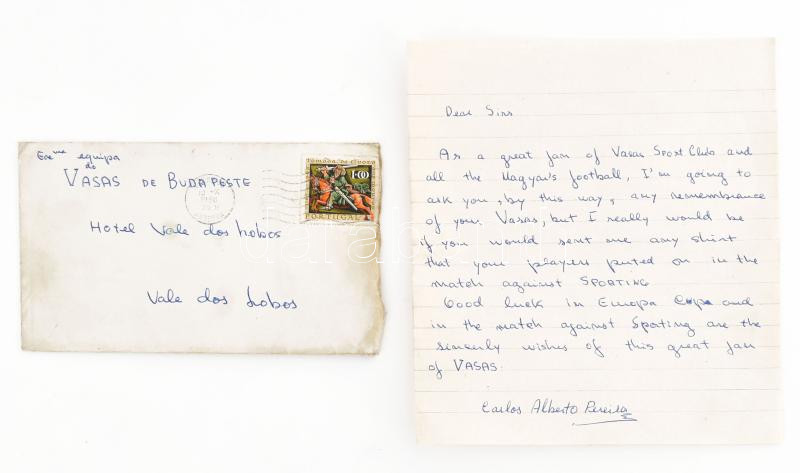 Exmª equipa
do
VASAS DE BUDAPESTE
Hotel Vale dos Lobos
Vale dos Lobos
Tomada de Évora
1$00
PORTUGAL
Dear Sirs
As a great fan of Vasas Sport Club and
all the Magyar's football, I'm going to
ask you, by this way, any remembrance
of your Vasas, but I really would be
if you would sent me any shirt
that your players puted on in the
match against SPORTING
Good luck in Europa Cup and
in the match against Sporting are the
sincerly wishes of this great fan
of VASAS
Carlos Alberto Pereira